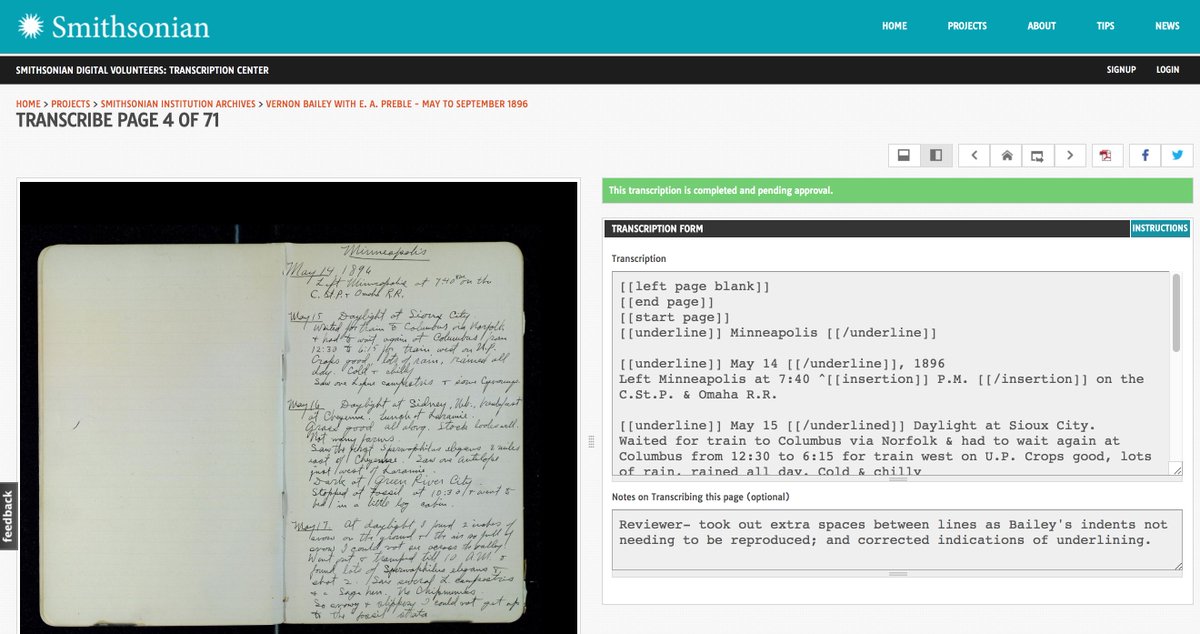 Smithsonian
HOME PROJECTS ABOUT TIPS NEWS
SMITHSONIAN DIGITAL VOLUNTEERS: TRANSCRIPTION CENTER
SIGNUP LOGIN
HOME > PROJECTS > SMITHSONIAN INSTITUTION ARCHIVES > VERNON BAILEY WITH E. A. PREBLE - MAY TO SEPTEMBER 1896
TRANSCRIBE PAGE 4 OF 71
Minneapolis
May 14, 1896
Left Minneapolis at 7:40 P.M. on the
C. St.P. & Omaha R.R.
May 15 Daylight at Sioux City
Waited for train to Columbus via Norfolk
& had to wait again at Columbus from
12:30 to 6:15 for train west on U.P.
Crops good, lots of rain, rained all
day. Cold & chilly
Saw one Lepus campestris & some
May 16 Daylight at Sidney, Neb., breakfast
at Cheyenne. Lunch at Laramie.
Grass good all along. Stock looks well.
Not many farms.
Saw the first Spermophilus elegans 2 miles
east of Cheyenne. Saw one Antelope
just west of Laramie.
Dark at Green River City.
Stopped at Fossil at 10:30 & went to
bed in a little log cabin.
May 17. At daylight I found 2 inches of
snow on the ground & the air so full of
snow I could not see across the valley
Went out & tramped till 10 A.M. &
found lots of Spermophilus elegans &
shot 2. Saw several L. campestris
& a Sage hen. No Chipmunks
So snowy & slippery I could not get up
to the fossil strata
This transcription is completed and pending approval.
TRANSCRIPTION FORM
INSTRUCTIONS
Transcription
[[left page blank]]
[[end page]]
[[start page]]
[[underline]] Minneapolis [[/underline]]
[[underline]] May 14 [[/underline]], 1896
Left Minneapolis at 7:40 ^[[insertion]] P.M. [[/insertion]] on the
C.St.P. & Omaha R.R.
[[underline]] May 15 [[/underlined]] Daylight at Sioux City.
Waited for train to Columbus via Norfolk & had to wait again at
Columbus from 12:30 to 6:15 for train west on U.P. Crops good, lots
of rain, rained all day. Cold & chilly
Notes on Transcribing this page (optional)
Reviewer- took out extra spaces between lines as Bailey's indents not
needing to be reproduced; and corrected indications of underlining.
feedback